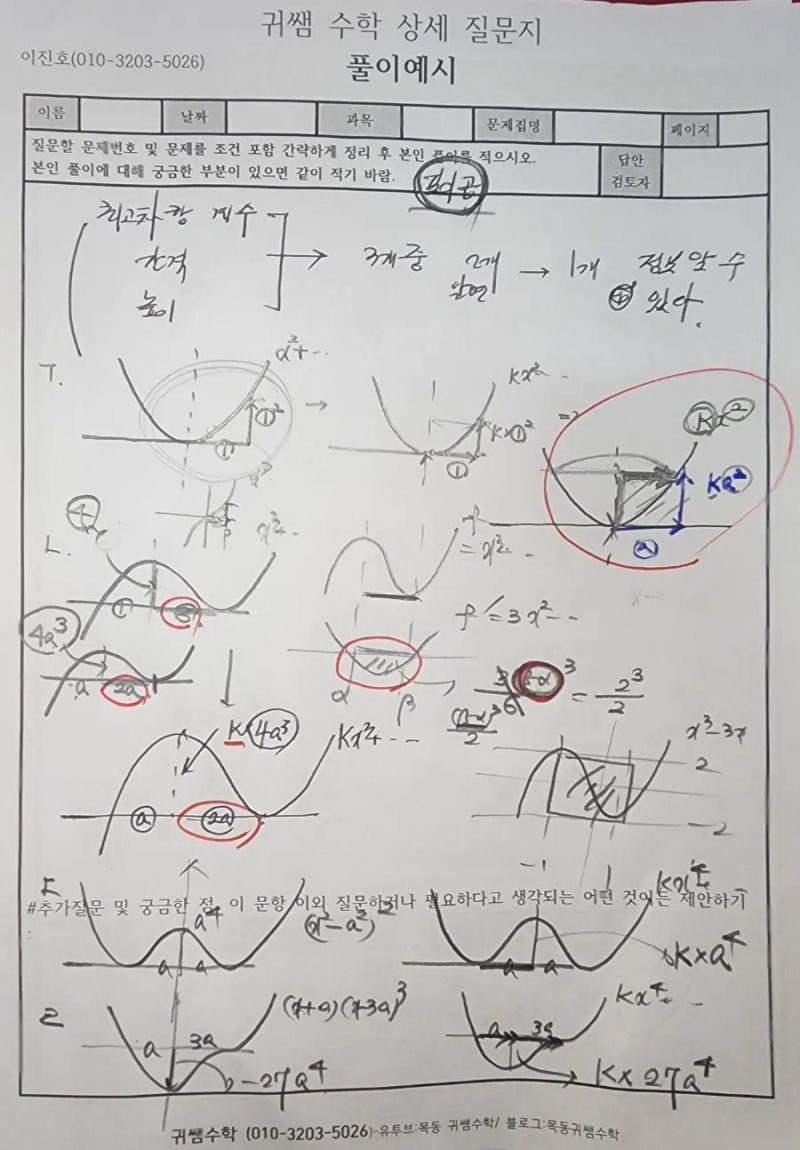 귀쌤 수학 상세 질문지
이진호(010-3203-5026)
풀이예시
이름 날짜 과목 문제집명 페이지
질문할 문제번호 및 문제를 조건 포함 간략하게 정리 후 본인 풀이를 적으시오.
본인 풀이에 대해 궁금한 부분이 있으면 같이 적기 바람.
답안
검토자
최고차항 계수
간격
높이
→ 3개 중 2개 알면 → 1개 정보 알 수
있다.
ㄱ.
x²+‥
①²
①
→
kx²‥
k×①²
①
⇒
kx²
ka²
ⓐ
ㄴ.
4
x³+‥
①
f
= x³‥
4a³
a
2a
f′=3x²‥
α
β
(β-α)³
2
= 2³
2
k(4a³)
kx³+‥
ⓐ
2a
x³-3x
2
-2
-1
1
ㄷ
#추가질문 및 궁금한 점, 이 문항 이외 질문하거나 필요하다고 생각되는 어떤 것이든 제안하기
a⁴
(x²-a²)²
a a
kx⁴
a a
k×a⁴
ㄹ
a 3a
(x+a)(x-3a)³
-27a⁴
kx⁴‥
a 3a
k×27a⁴
귀쌤수학 (010-3203-5026)-유투브:목동 귀쌤수학/ 블로그:목동귀쌤수학